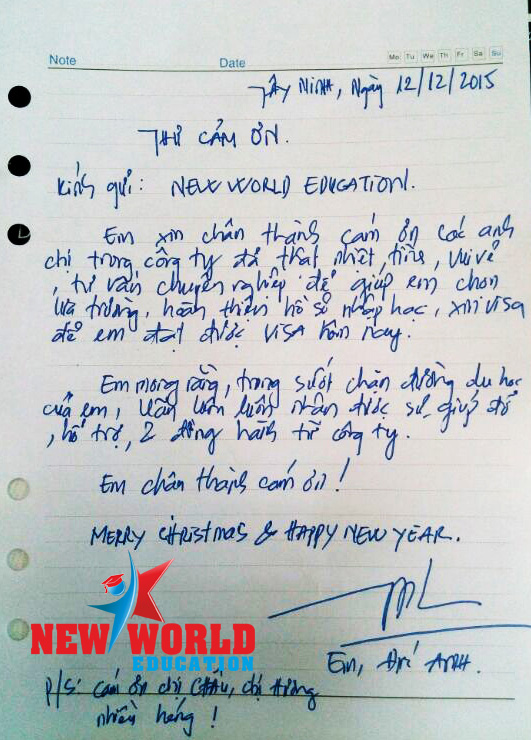 Note Date Mo Tu We Th Fr Sa Su
Tây Ninh, Ngày 12/12/2015
THƯ CẢM ƠN.
Kính gửi: NEW WORLD EDUCATION.
Em xin chân thành cám ơn các anh
chị trong công ty đã thật nhiệt tình, vui vẻ
, tư vấn chuyên nghiệp để giúp em chọn
lựa trường, hoàn thiện hồ sơ nhập học, xin visa
để em đạt được visa hôm nay.
Em mong rằng, trong suốt chặn đường du học
của em, vẫn luôn luôn nhận được sự giúp đỡ
, hổ trợ, & đồng hành từ công ty.
Em chân thành cám ơn!
MERRY CHRISTMAS & HAPPY NEW YEAR.
NEW WORLD
EDUCATION
Em, ANH.
P/S: cám ơn chị CHÂU, chị
nhiều !